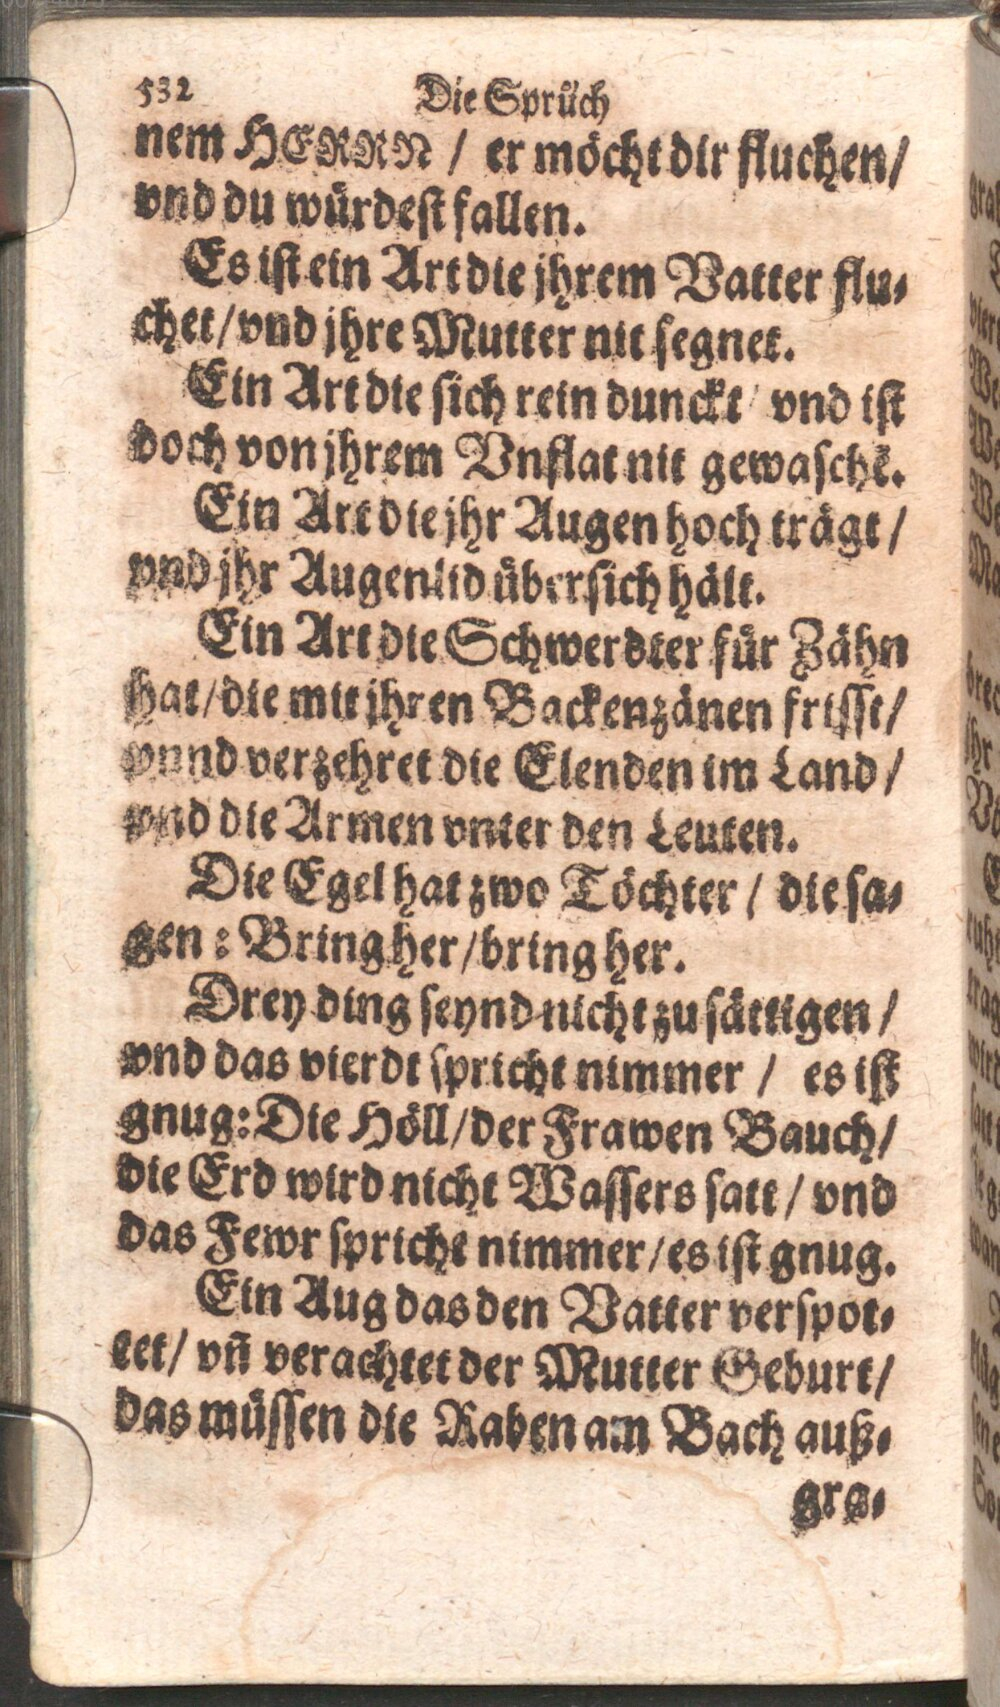 532 Die Sprüch
nem HERRN / er möcht dir fluchen/
vnd du würdest fallen.
Es ist ein Art die jhrem Vatter flu-
chet/vnd jhre Mutter nit segnet.
Ein Art die sich rein dunckt/ vnd ist
doch von jhrem Vnflat nit gewaschē.
Ein Art die jhr Augen hoch trägt /
vnd jhr Augenlid übersich hält.
Ein Art die Schwerdter für Zähn
hat/die mit jhren Backenzänen frisst/
vnnd verzehret die Elenden im Land /
vnd die Armen vnter den Leuten.
Die Egel hat zwo Töchter / die sa-
gen : Bring her/bring her.
Drey ding seynd nicht zu sättigen /
vnd das vierdt spricht nimmer / es ist
gnug: Die Höll/der Frawen Bauch/
die Erd wird nicht Wassers satt / vnd
das Fewr spricht nimmer/es ist gnug.
Ein Aug das den Vatter verspot-
tet/ vn̄ verachtet der Mutter Geburt/
das müssen die Raben am Bach auß-
gra-